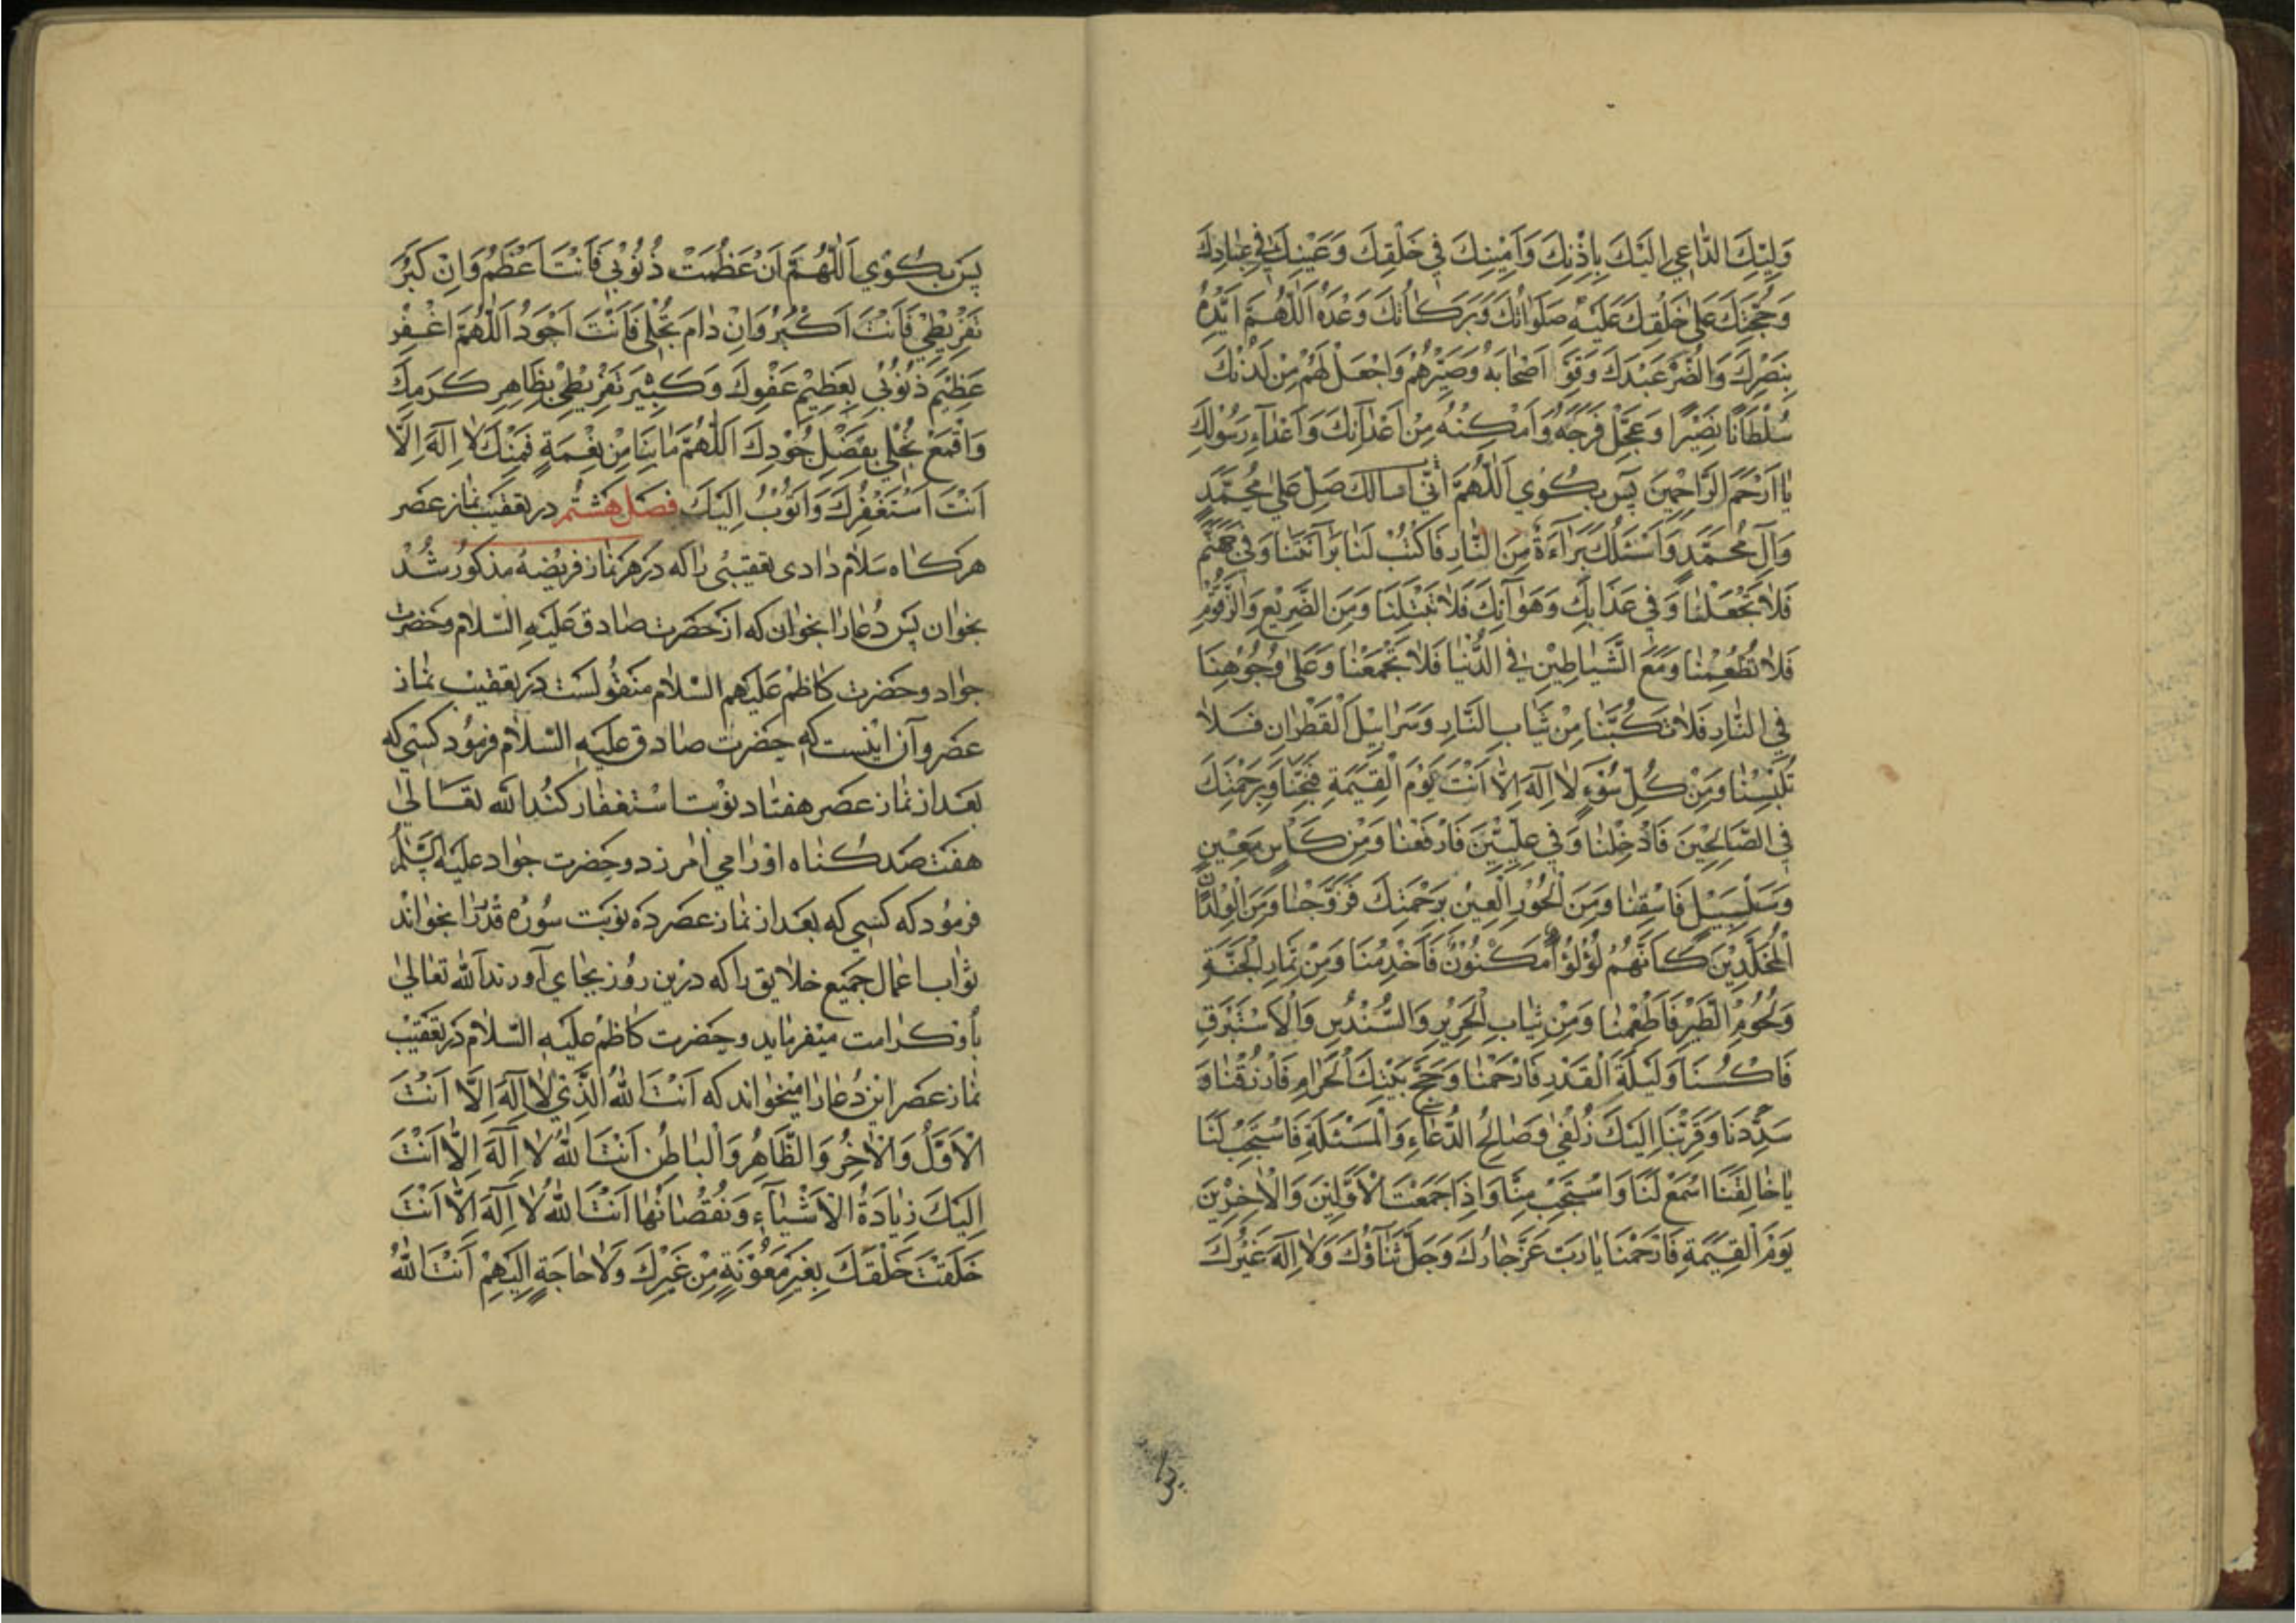 وَلِيِّكَ الدَّاعِي اِلَيْكَ بِاِذْنِكَ وَاَمِيْنِكَ فِي خَلْقِكَ وَعَيْنِكَ فِي عِبَادِكَ
وَحُجَّتِكَ عَلٰي خَلْقِكَ عَلَيْهِ صَلَوَاتُكَ وَبَرَكَاتُكَ وَعْدَهُ اَللّٰهُمَّ اَيِّدْهُ
بِنَصْرِكَ وَانْصُرْ عَبْدَكَ وَقَوِّ اَصْحَابَهُ وَصَبِّرْهُمْ وَاجْعَلْ لَهُمْ مِنْ لَدُنْكَ
سُلْطَانًا نَصِيْرًا وَعَجِّلْ فَرَجَهُ وَاَمْكِنْهُ مِنْ اَعْدَآئِكَ وَاَعْدَآءِ رَسُوْلِكَ
يَا اَرْحَمَ الرَّاحِمِيْنَ پس بكوي اَللّٰهُمَّ اِنِّي اسالك صَلِّ عَلٰي مُحَمَّدٍ
وَآلِ مُحَمَّدٍ وَاَسْئَلُكَ بَرَاءَةً مِنَ النَّارِ فَاكْتُبْ لَنَا بَرَآئَتَنَا وَفِي جَهَنَّمَ
فَلَا تَجْعَلْنَا وَفِي عَذَابِكَ وَهَوَانِكَ فَلَا تَبْتَلِنَا وَمِنَ الضَّرِيْعِ وَالزَّقُّوْمِ
فَلَا تُطْعِمْنَا وَمَعَ الشَّيَاطِيْنِ فِي الدُّنْيَا فَلَا تَجْمَعْنَا وَعَلٰي وُجُوْهِنَا
فِي النَّارِ فَلَا تَكُبَّنَا مِنْ ثِيَابِ النَّارِ وَسَرَابِيْلَ الْقَطْرَانِ فَلَا
تُلْبِسْنَا وَمِنْ كُلِّ سُوْءٍ لَا اِلٰهَ اِلَّا اَنْتَ يَوْمَ الْقِيٰمَةِ فَنَجِّنَا وَبِرَحْمَتِكَ
فِي الصَّالِحِيْنَ فَاَدْخِلْنَا وَفِي عِلِّيِّيْنَ فَارْفَعْنَا وَمِنْ كَاْسٍ مَعِيْنٍ
وَسَلْسَبِيْلٍ فَاسْقِنَا وَمِنَ الْحُوْرِ الْعِيْنِ بِرَحْمَتِكَ فَزَوِّجْنَا وَمِنَ الْوِلْدَانِ
الْمُخَلَّدِيْنَ كَاَنَّهُمْ لُؤْلُؤٌ مَكْنُوْنٌ فَاَخْدِمْنَا وَمِنْ ثِمَارِ الْجَنَّةِ
وَلُحُوْمِ الطَّيْرِ فَاَطْعِمْنَا وَمِنْ ثِيَابِ الْحَرِيْرِ وَالسُّنْدُسِ وَالْاِسْتَبْرَقِ
فَاكْسُنَا وَلَيْلَةَ الْقَدْرِ فَارْحَمْنَا وَحَجَّ بَيْتِكَ الْحَرَامِ فَارْزُقْنَا وَ
سَدِّدْنَا وَقَرِّبْنَا اِلَيْكَ زُلْفٰي وَصَالِحَ الدُّعَاءِ وَالْمَسْئَلَةِ فَاسْتَجِبْ لَنَا
يَا خَالِقَنَا اسْمَعْ لَنَا وَاسْتَجِبْ مِنَّا وَاِذَا جَمَعْتَ الْاَوَّلِيْنَ وَالْاٰخِرِيْنَ
يَوْمَ الْقِيٰمَةِ فَارْحَمْنَا يَا رَبِّ عَزَّ جَارُكَ وَجَلَّ ثَنَآؤُكَ وَلَا اِلٰهَ غَيْرُكَ
پس
پس بكوي اَللّٰهُمَّ اِنْ عَظُمَتْ ذُنُوْبِي فَاَنْتَ اَعْظَمُ وَاِنْ كَبُرَ
تَفْرِيْطِي فَاَنْتَ اَكْبَرُ وَاِنْ دَامَ بُخْلِي فَاَنْتَ اَجْوَدُ اَللّٰهُمَّ اغْفِرْ
عَظِيْمَ ذُنُوْبِي بِعَظِيْمِ عَفْوِكَ وَكَثِيْرَ تَفْرِيْطِي بِظَاهِرِ كَرَمِكَ
وَاقْمَعْ بُخْلِي بِفَضْلِ جُوْدِكَ اَللّٰهُمَّ مَا بِنَا مِنْ نِعْمَةٍ فَمِنْكَ لَا اِلٰهَ اِلَّا
اَنْتَ اَسْتَغْفِرُكَ وَاَتُوْبُ اِلَيْكَ فصل هشتم در تعقيب نماز عصر
هركاه سلام دادى تعقيبى را كه در هر نماز فريضه مذكور شد
بخوان پس دعا را بخوان كه از حضرت صادق عليه السلام وحضرت
جواد وحضرت كاظم عليهم السلام منقولست در تعقيب نماز
عصر وآن اينست كه حضرت صادق عليه السلام فرمود كسي كه
بعد از نماز عصر هفتاد نوبت استغفار كند الله تعالٰي
هفت صد كناه او را مي آمرزد وحضرت جواد عليه السلام
فرمود كه كسي كه بعد از نماز عصر ده نوبت سوره قدر را بخواند
ثواب اعمال جميع خلايق را كه درين روز بجاي آورند الله تعالٰي
باو كرامت ميفرمايد وحضرت كاظم عليه السلام در تعقيب
نماز عصر اين دعا را ميخواند كه اَنْتَ اللّٰهُ الَّذِي لَا اِلٰهَ اِلَّا اَنْتَ
الْاَوَّلُ وَالْاٰخِرُ وَالظَّاهِرُ وَالْبَاطِنُ اَنْتَ اللّٰهُ لَا اِلٰهَ اِلَّا اَنْتَ
اِلَيْكَ زِيَادَةُ الْاَشْيَآءِ وَنُقْصَانُهَا اَنْتَ اللّٰهُ لَا اِلٰهَ اِلَّا اَنْتَ
خَلَقْتَ خَلْقَكَ بِغَيْرِ مَعُوْنَةٍ مِنْ غَيْرِكَ وَلَا حَاجَةٍ اِلَيْهِمْ اَنْتَ اللّٰهُ